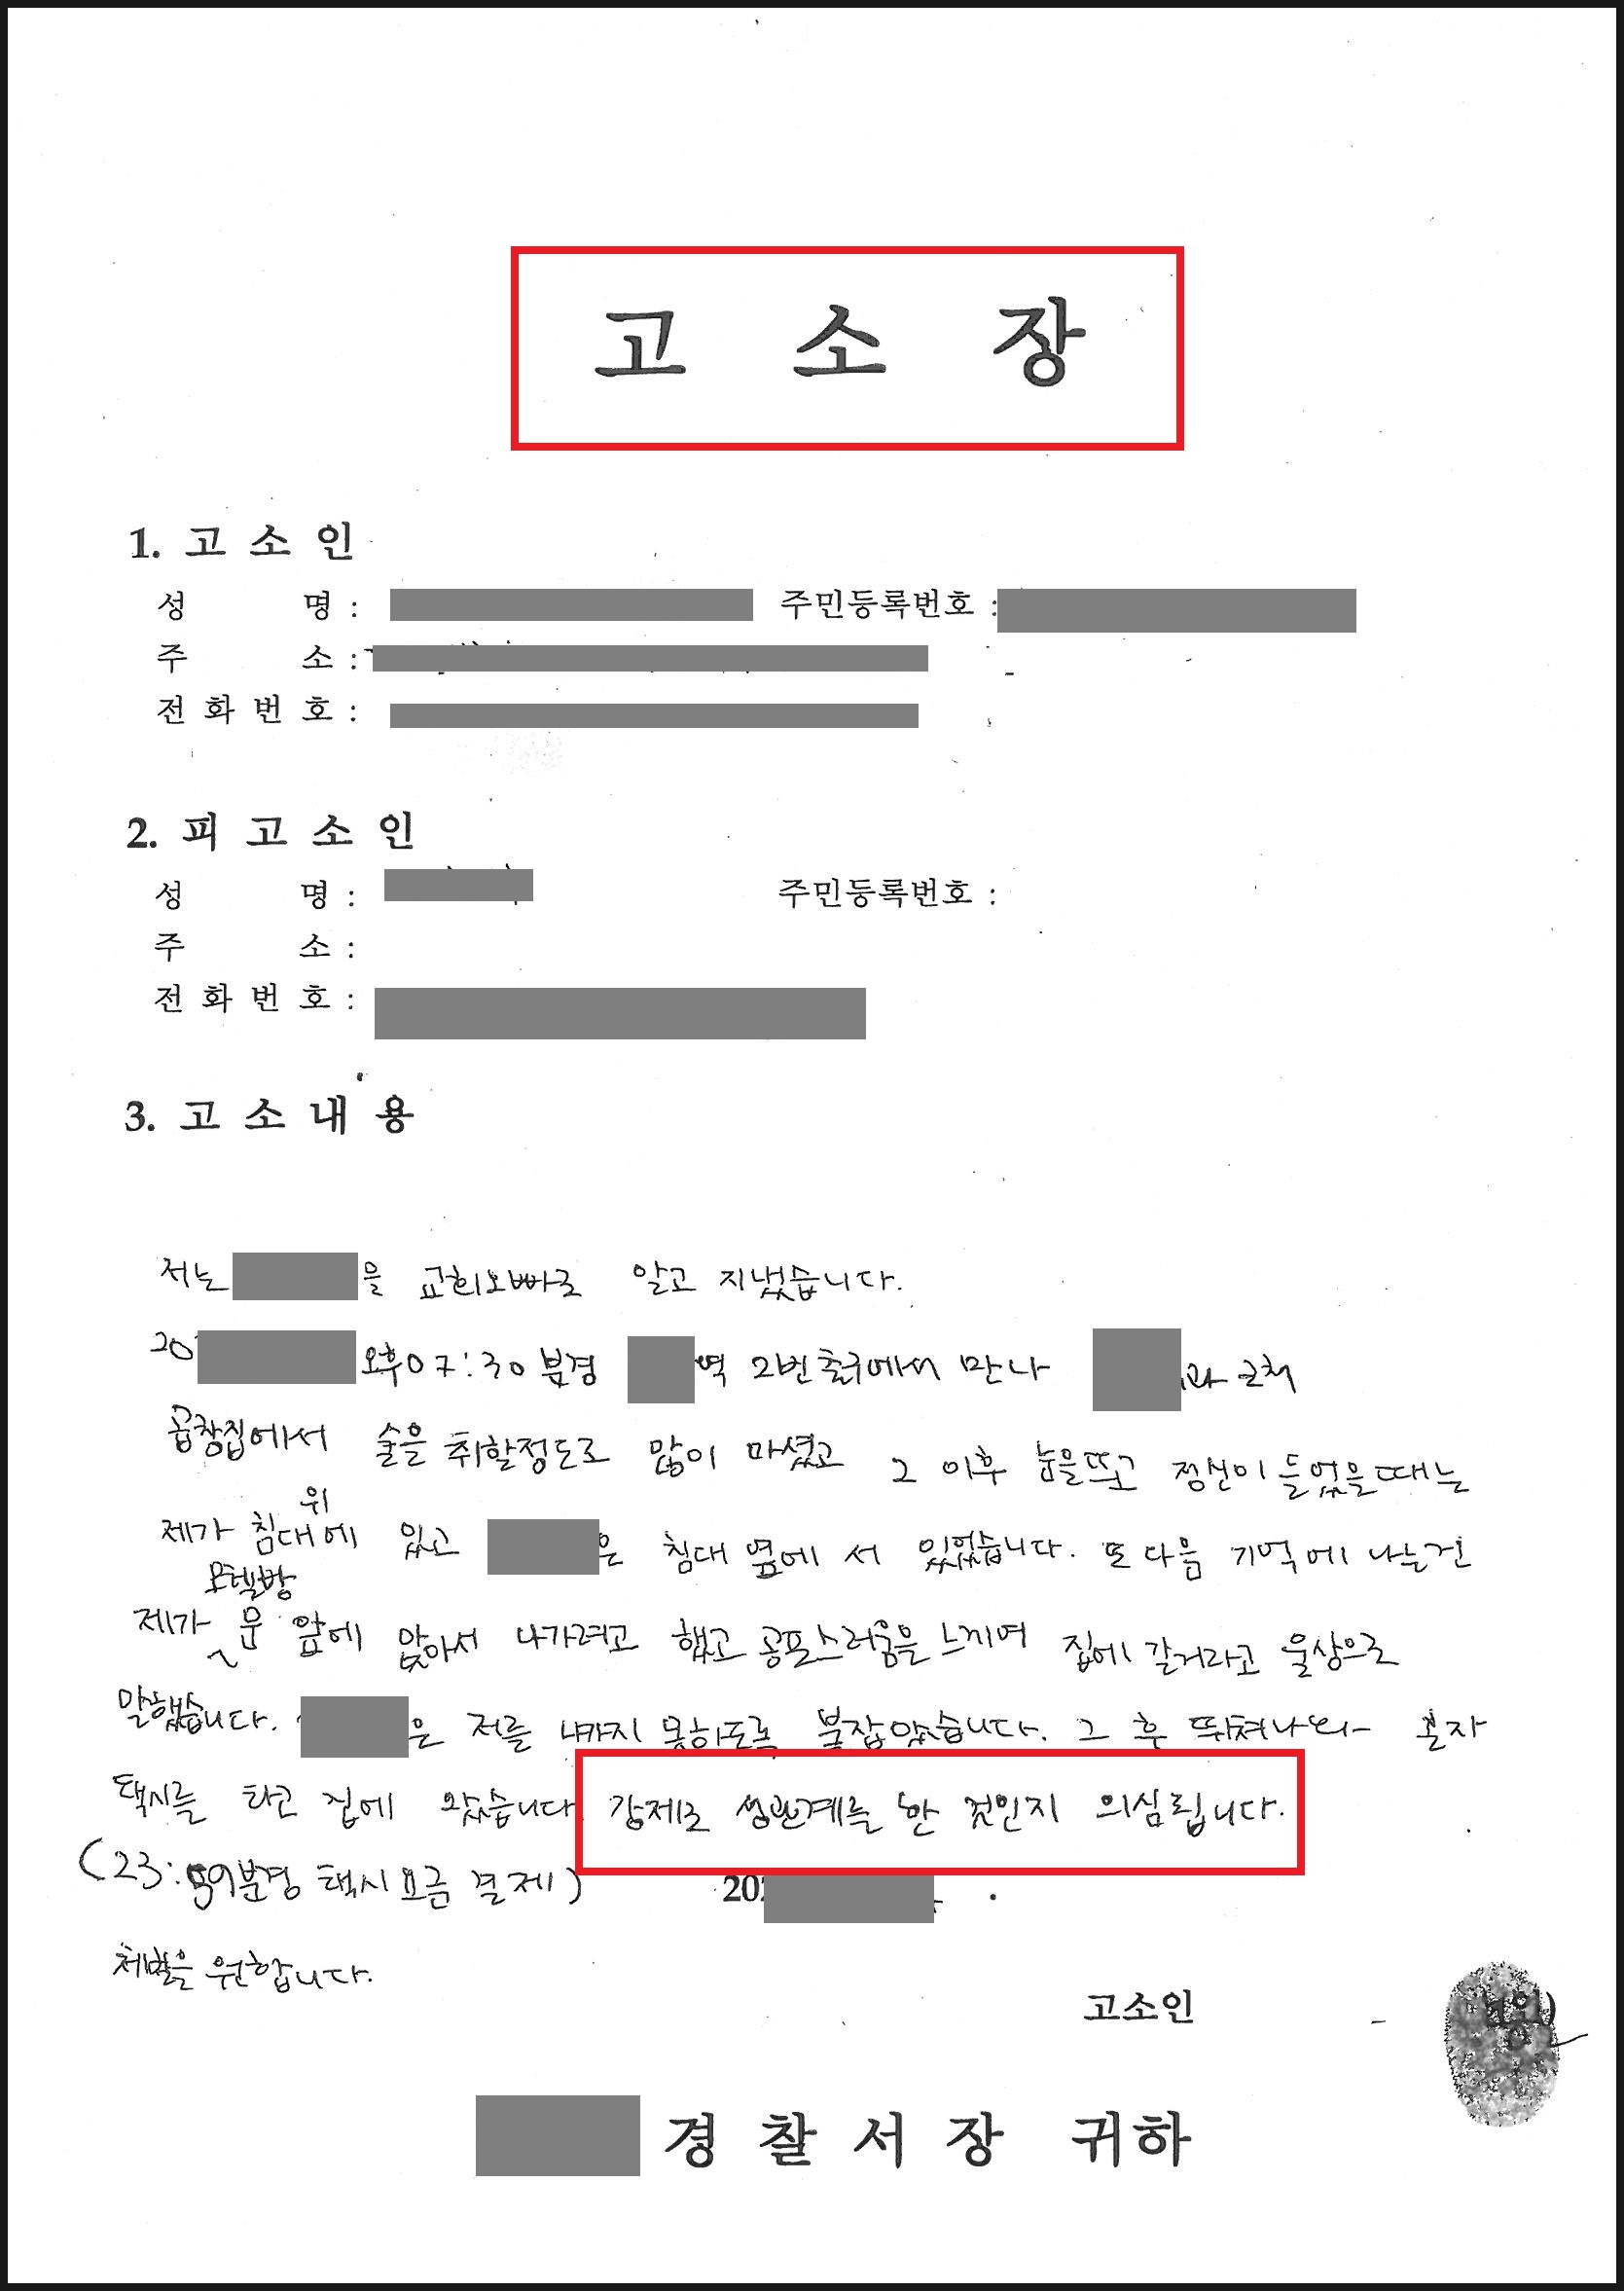 고 소 장
1. 고 소 인
성 명 : 주민등록번호 :
주 소 :
전 화 번 호 :
2. 피 고 소 인
성 명 : 주민등록번호 :
주 소 :
전 화 번 호 :
3. 고 소 내 용
저는 을 교회오빠로 알고 지냈습니다.
20 오후 07:30분경 역 2번출구에서 만나 과 근처
곱창집에서 술을 취할정도로 많이 마셨고 그 이후 눈을뜨고 정신이 들었을때는
위
제가 침대에 있고 은 침대 옆에 서 있었습니다. 또 다음 기억에 나는건
모텔방
제가 문 앞에 앉아서 나가려고 했고 공포스러움을 느끼며 집에 갈거라고 울상으로
말했습니다. 은 저를 나가지 못하도록 붙잡았습니다. 그 후 뛰쳐나와 혼자
택시를 타고 집에 왔습니다. 강제로 성관계를 한 것인지 의심됩니다.
(23:59분경 택시요금 결제) 20
처벌을 원합니다.
고소인
경 찰 서 장 귀하